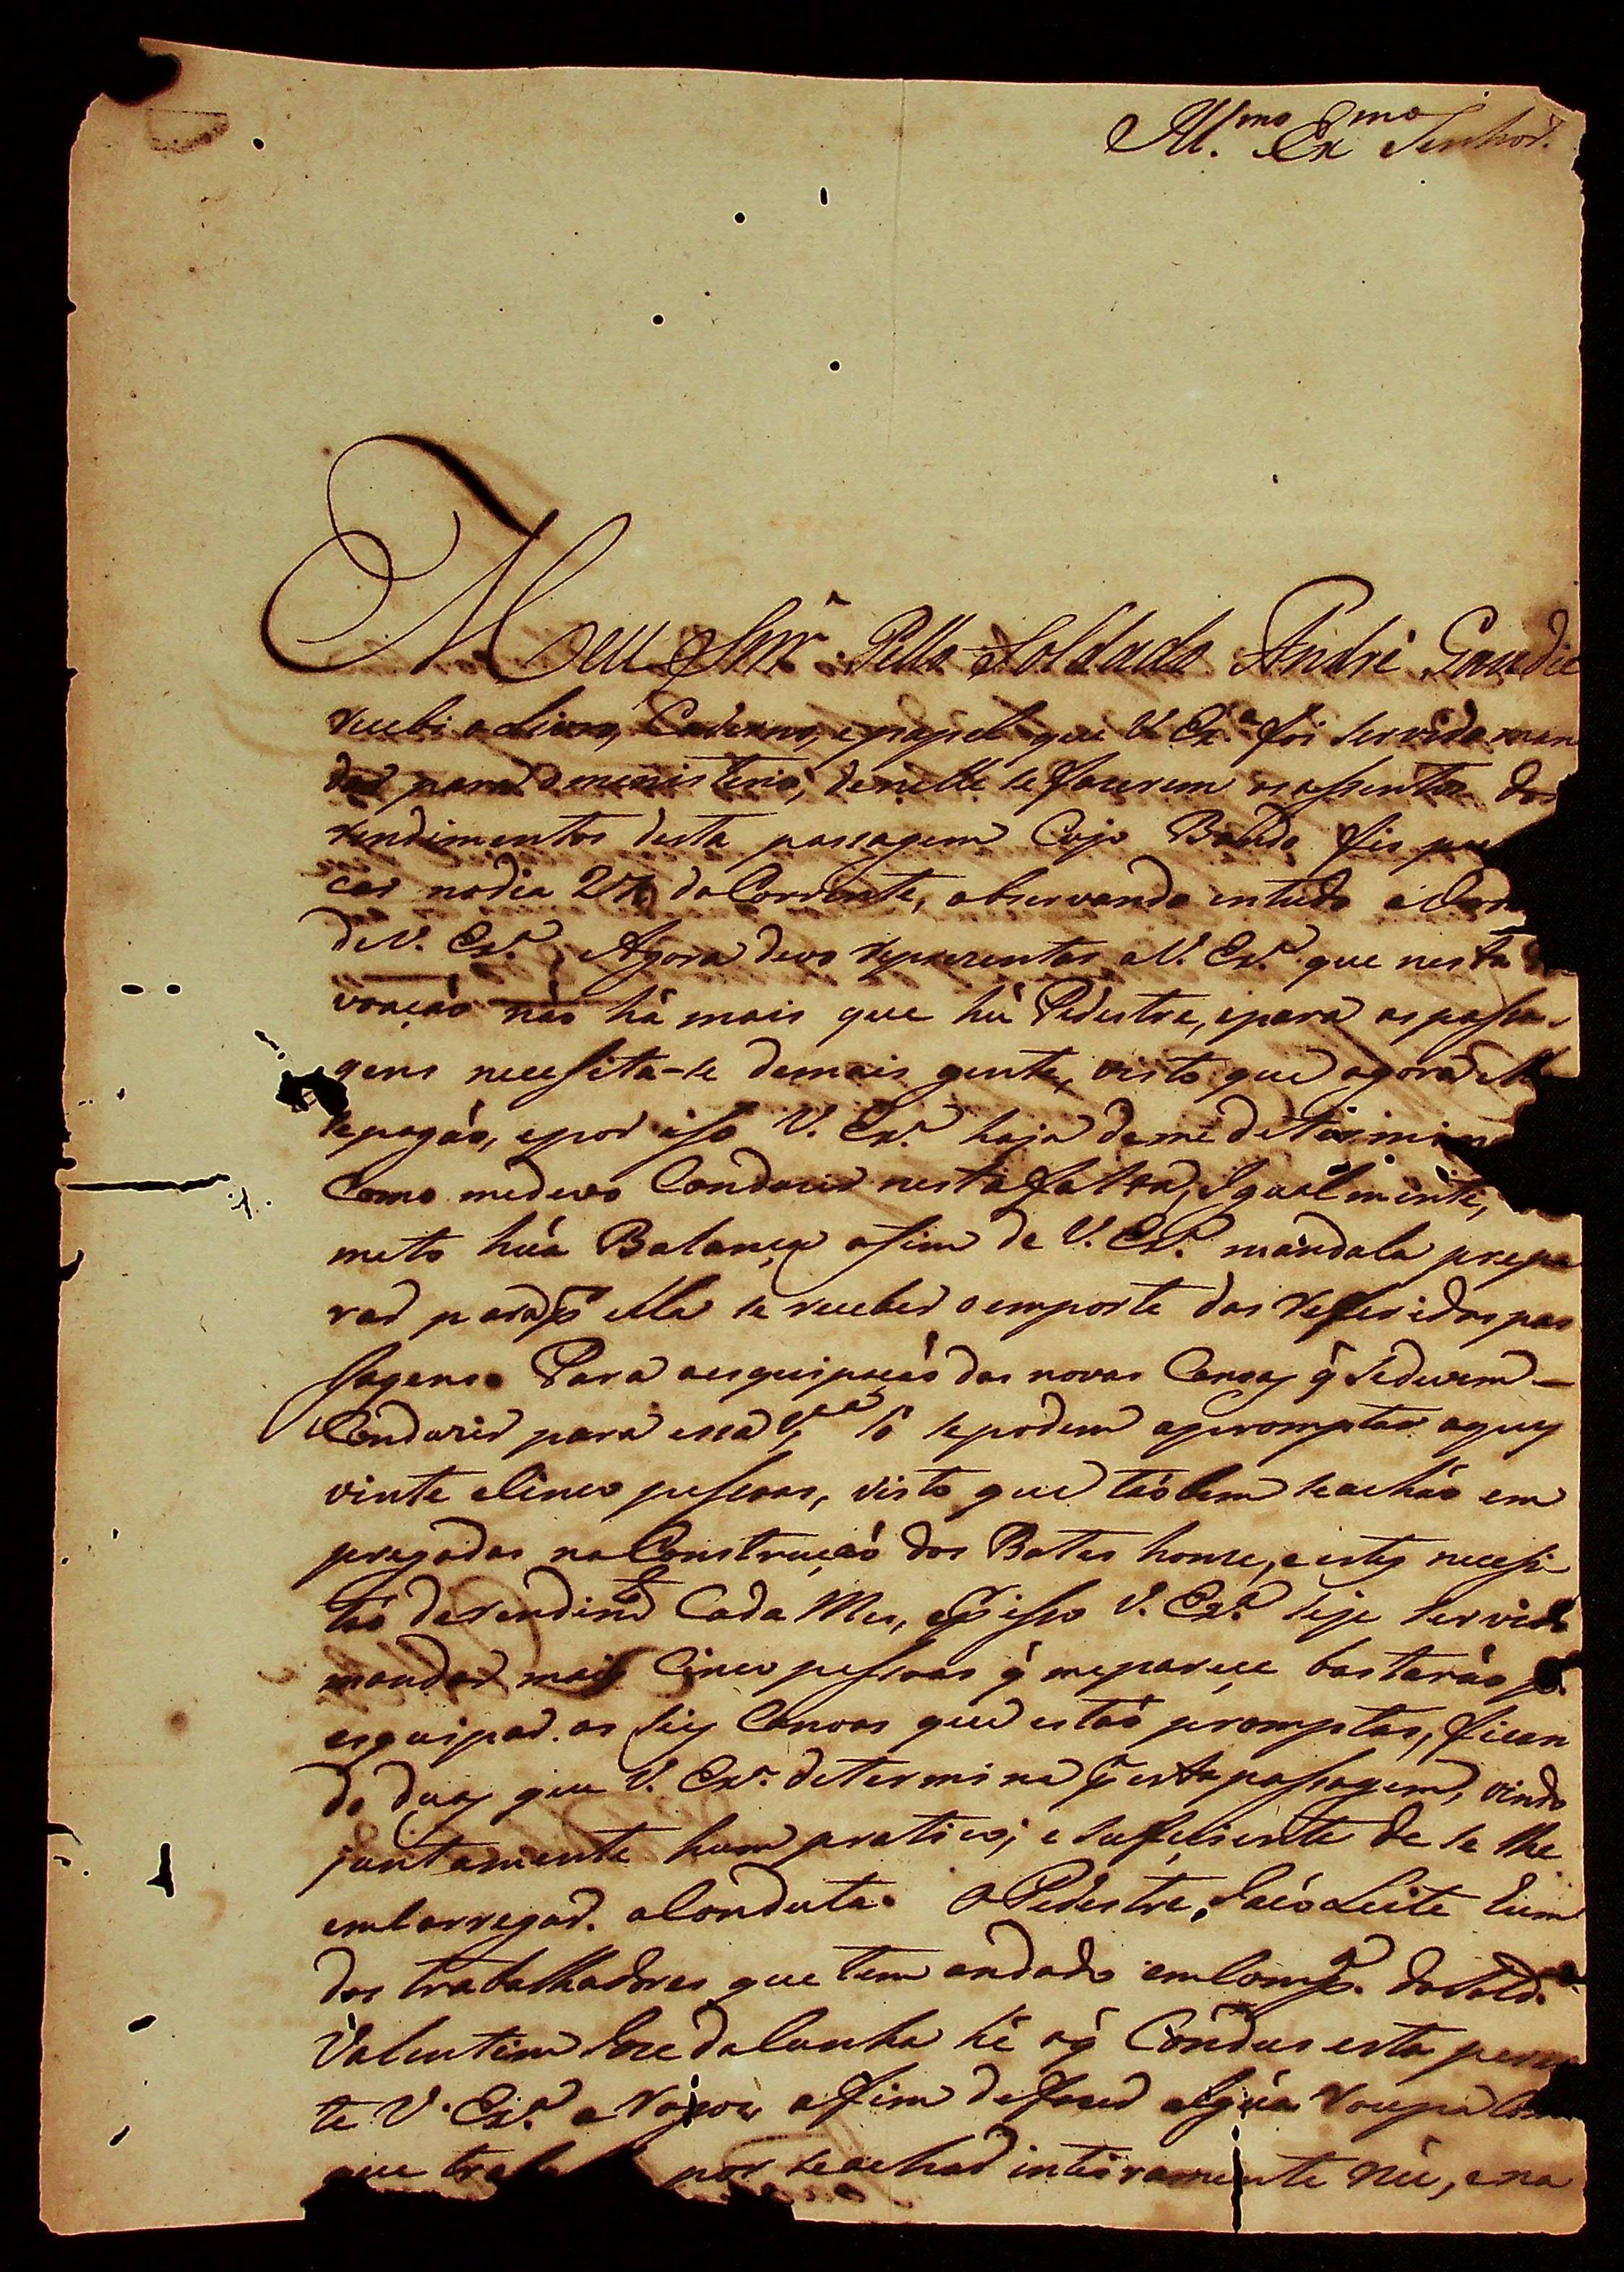 Ill.mo Ex.mo Senhor.
Meu Snr. Pello Soldado André Gaudie
recebi o Livro, Caderno, e papel que V. Ex.a foi servido man
dar para o menisterio, de nelle se fazerem os assentos dos
rendimentos desta passagem Cujo Bando fis pu
car no dia 24 do Corrente, observando em tudo a
de V. Ex.a Agora devo reprezentar a V. Ex.a que nesta
voação não há mais que hú Pedestre, e para as passa-
gens necessita-se de mais gente, visto que agora
se pagão, e por isso V. Ex.a haja de me determin
Como me devo Conduzir nesta falta, Igualmente,
meto húa Balança afim de V. Ex.a mandala prepa
rar para ella se receber o emporte das referidas pas
sagens. Para a esquipação das novas Canoas q̃ se devem
Conduzir para essa V.a só se podem apromptar aquy
vinte e Cinco pessoas, visto que tãobem se achão em
pregadas na Construção dos Botes honze, e estes necessi
tão de rendim.to Cada Mes, e p.r isso V. Ex.a seje servido
mandar mais Cinco pessoas q̃ me parece bastarão p.a
esquipar. as seis Canoas que estão promptas, fican
do duas que V. Ex.a determina p.a esta passagem, vindo
juntamente hum pratico, e suficiente de se lhe
emCarregar. a Conduta. O Pedestre, João Leite hum
dos trabalhadores que tem andado em Comp.a do Sold.o
Valentim Joze da Cunha hé o q̃ Condus esta peran
te V. Ex.a a rogou afim de fazer algúa roupa Com
que tra por se achar inteiramente nú, e na